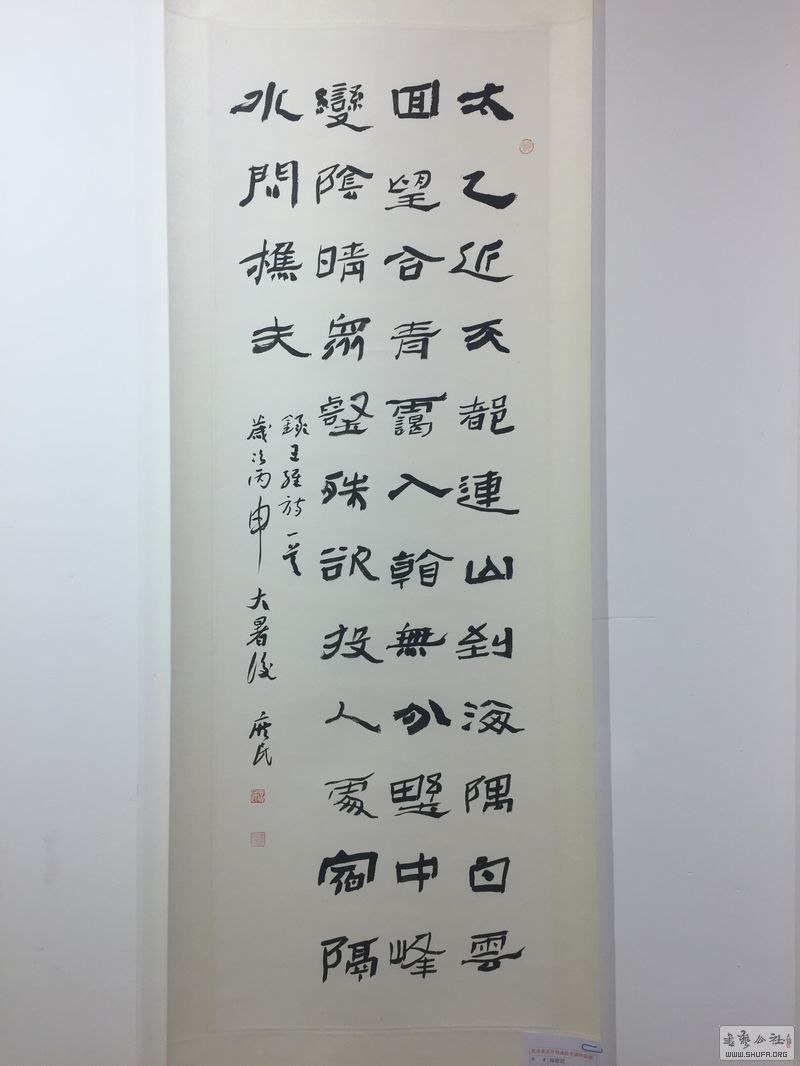 太乙近天都連山到海隅白雲
回望合青靄入看無分野中峰
變陰晴衆壑殊欲投人處宿隔
水問樵夫
錄王維詩一首
歲次丙申大暑後 庶民
書法公社
WWW.SHUFA.ORG